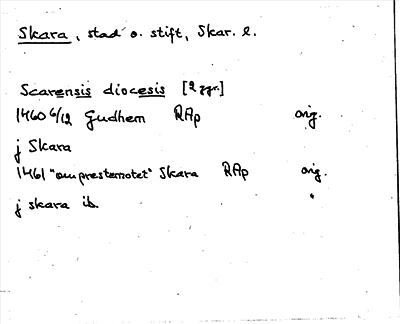 Skara, stad o. stift, Skar. l.
Scarensis diocesis [2 ggr.]
1460 6/12 Gudhem RAp orig.
j Skara
1461 "om prestemotet" Skara RAp orig.
j skara ib. "